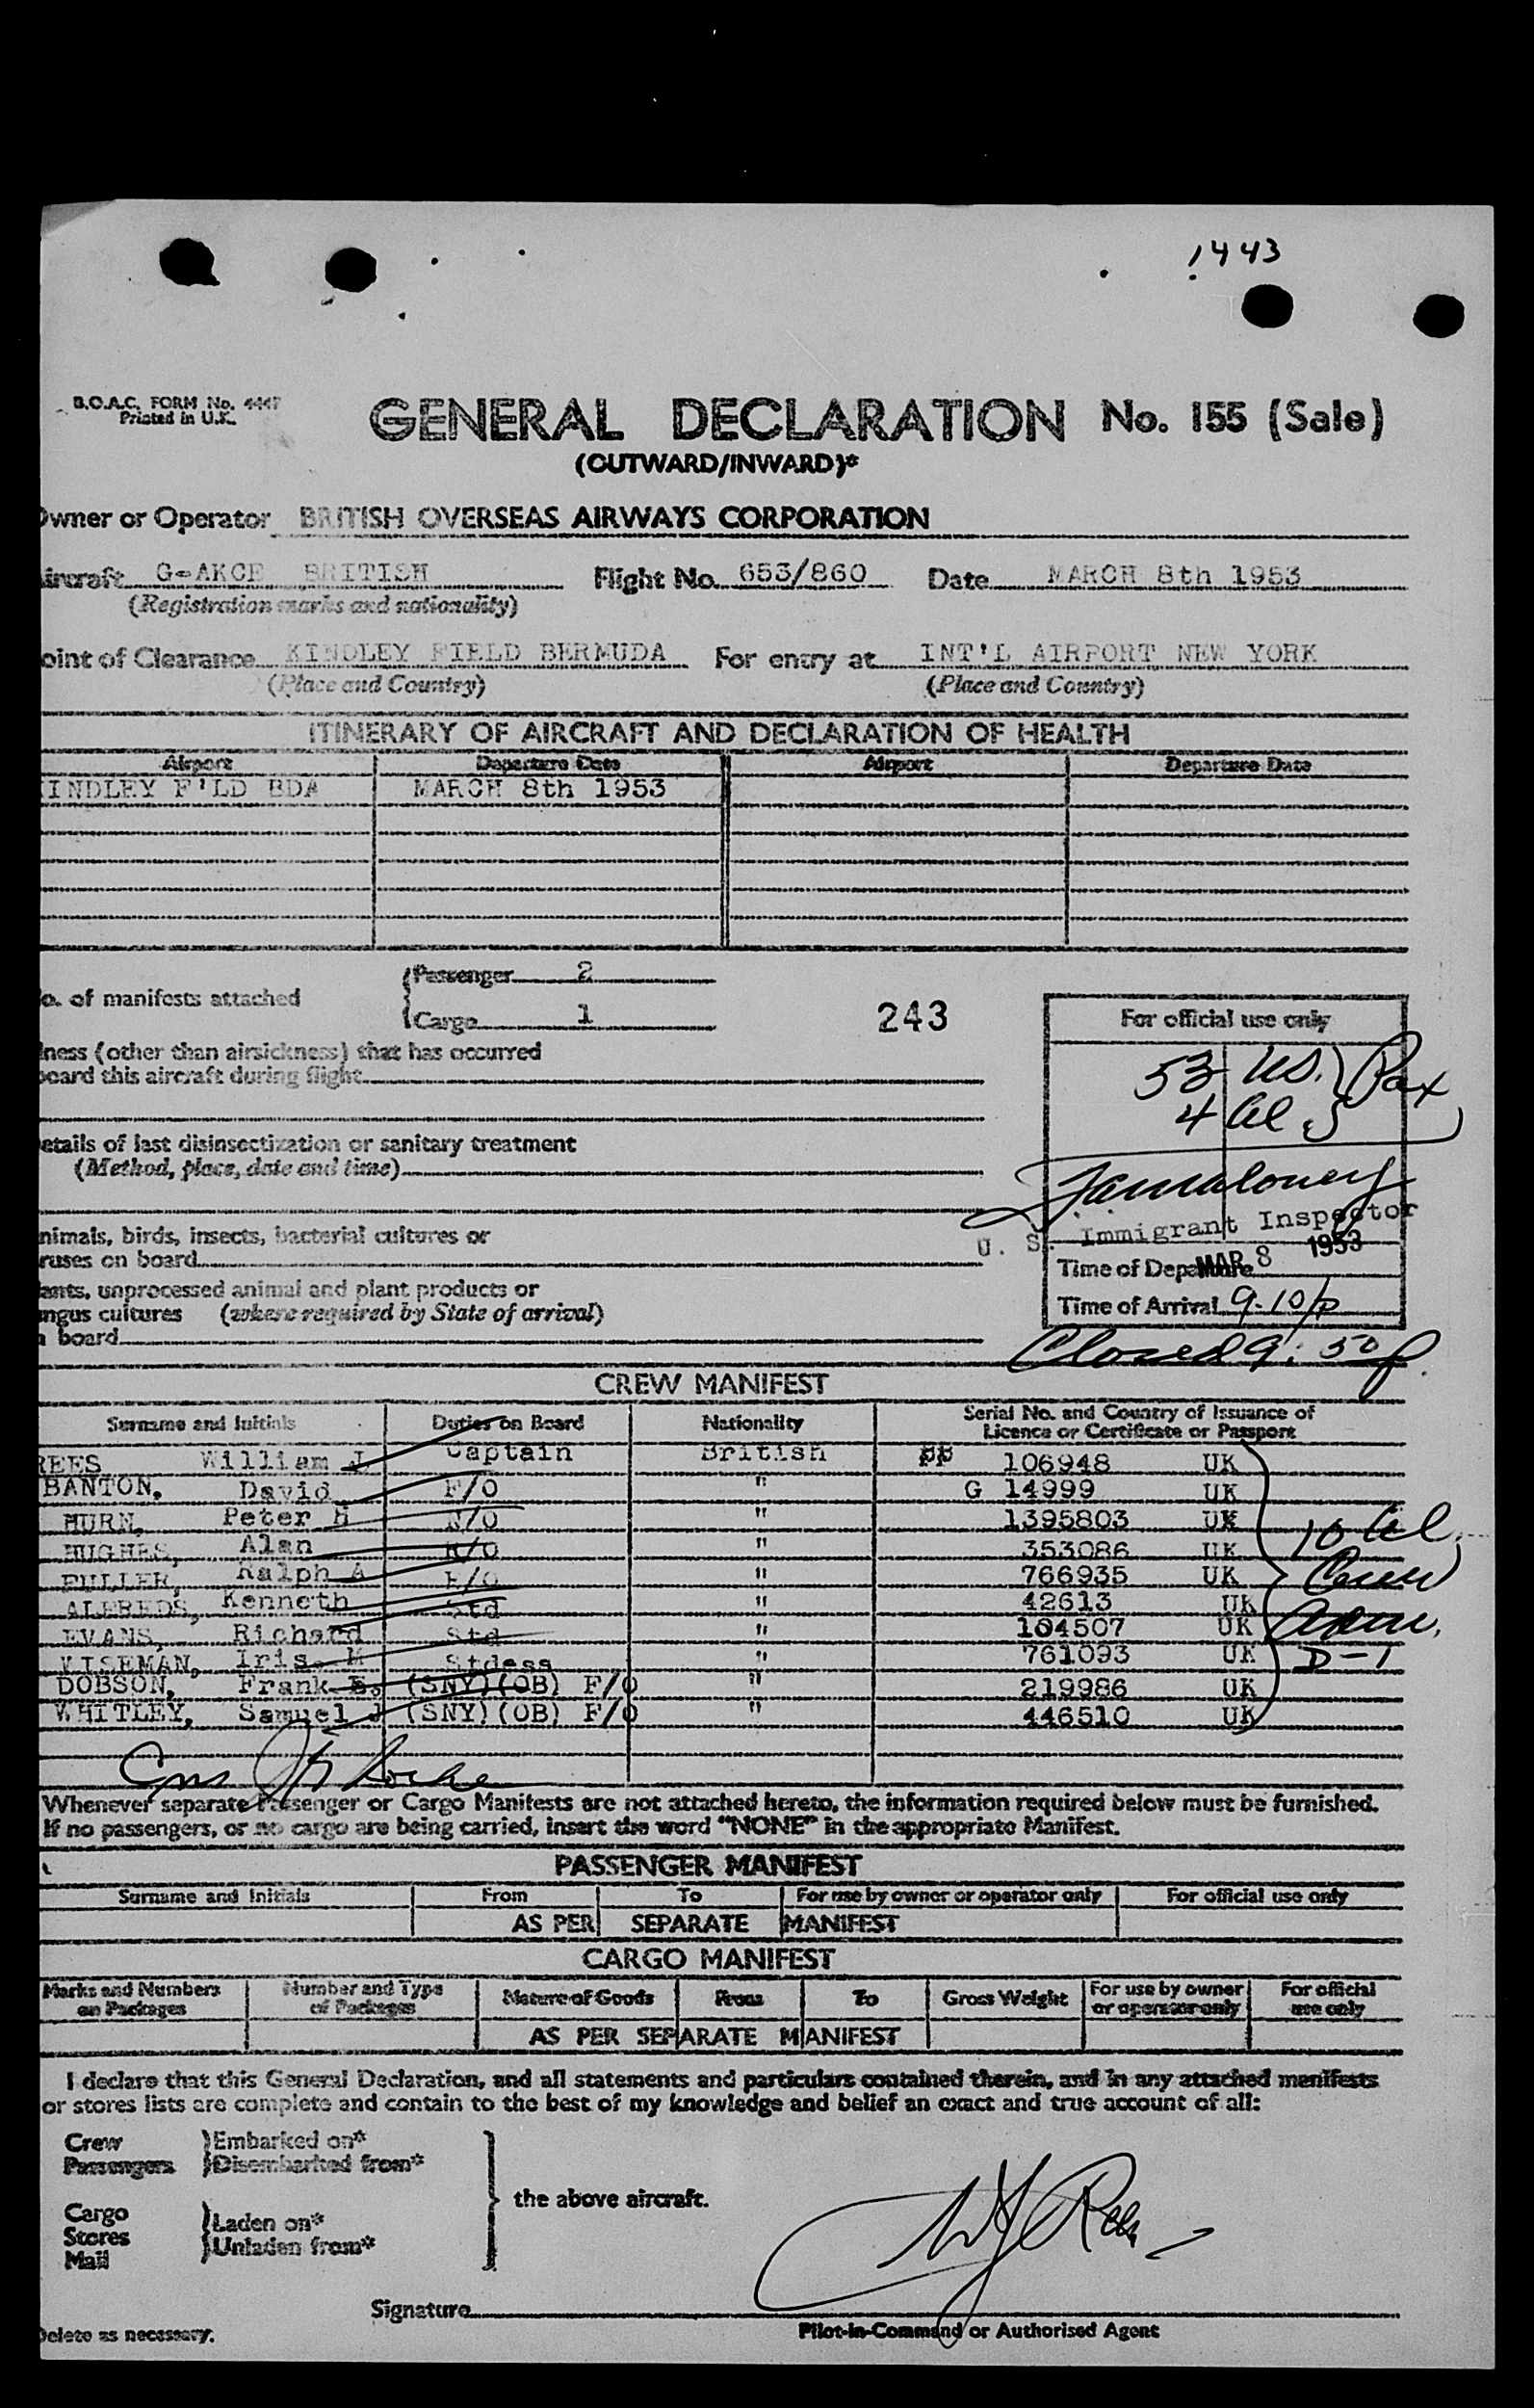 1443
B.O.A.C. FORM No. 4447
Printed in U.K.
GENERAL DECLARATION No. 155 (Sale)
(OUTWARD/INWARD)*
Owner or Operator BRITISH OVERSEAS AIRWAYS CORPORATION
Aircraft G-AKCE BRITISH Flight No. 653/860 Date MARCH 8th 1953
(Registration marks and nationality)
oint of Clearance KINDLEY FIELD BERMUDA For entry at INT'L AIRPORT NEW YORK
(Place and Country) (Place and Country)
ITINERARY OF AIRCRAFT AND DECLARATION OF HEALTH
Airport Departure Date Airport Departure Date
INDLEY F'LD BDA MARCH 8th 1953
o. of manifests attached
Passenger 2
Cargo 1
243
For official use only
lness (other than airsickness) that has occurred
board this aircraft during flight
53 US. Pax
4 Al
etails of last disinsectization or sanitary treatment
(Method, place, date and time)
U. S. Immigrant Inspector
nimals, birds, insects, bacterial cultures or
ruses on board
MAR 8 1953
Time of Departure
lants, unprocessed animal and plant products or
ngus cultures (where required by State of arrival)
n board
Time of Arrival 9-10/p
Closed 9:50p
CREW MANIFEST
Surname and Initials Duties on Board Nationality Serial No. and Country of Issuance of
Licence or Certificate or Passport
REES William J Captain British PP 106948 UK
BANTON, David F/O " G 14999 UK
HURN, Peter H N/O " 1395803 UK
HUGHES, Alan R/O " 353086 UK
FULLER, Ralph A E/O " 766935 UK
ALFREDS, Kenneth Std " 42613 UK
EVANS, Richard Std " 104507 UK
WISEMAN, Iris. M Stdess " 761093 UK
DOBSON, Frank E. (SNY)(OB) F/O " 219986 UK
WHITLEY, Samuel J (SNY)(OB) F/O " 446510 UK
10 Al.
Crew
Adm.
D-1
Whenever separate Passenger or Cargo Manifests are not attached hereto, the information required below must be furnished.
If no passengers, or no cargo are being carried, insert the word "NONE" in the appropriate Manifest.
PASSENGER MANIFEST
Surname and Initials From To For use by owner or operator only For official use only
AS PER SEPARATE MANIFEST
CARGO MANIFEST
Marks and Numbers on Packages Number and Type of Packages Nature of Goods From To Gross Weight For use by owner or operator only For official use only
AS PER SEPARATE MANIFEST
I declare that this General Declaration, and all statements and particulars contained therein, and in any attached manifests
or stores lists are complete and contain to the best of my knowledge and belief an exact and true account of all:
Crew Embarked on*
Passengers Disembarked from*
the above aircraft.
Cargo
Stores
Mail
Laden on*
Unladen from*
WJ Rees
Signature
Pilot-in-Command or Authorised Agent
Delete as necessary.